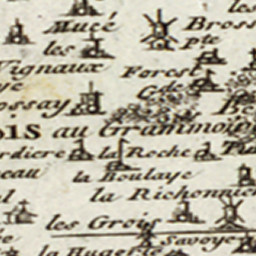 les
Mucé
Bross
les
Pte
Vignaux
Forest
Gde
ossay
ois au Grammoir
rdiere
la Roche
eau
la Boulaye
la Richonnie
les Grois
Savoye
la Bugerie